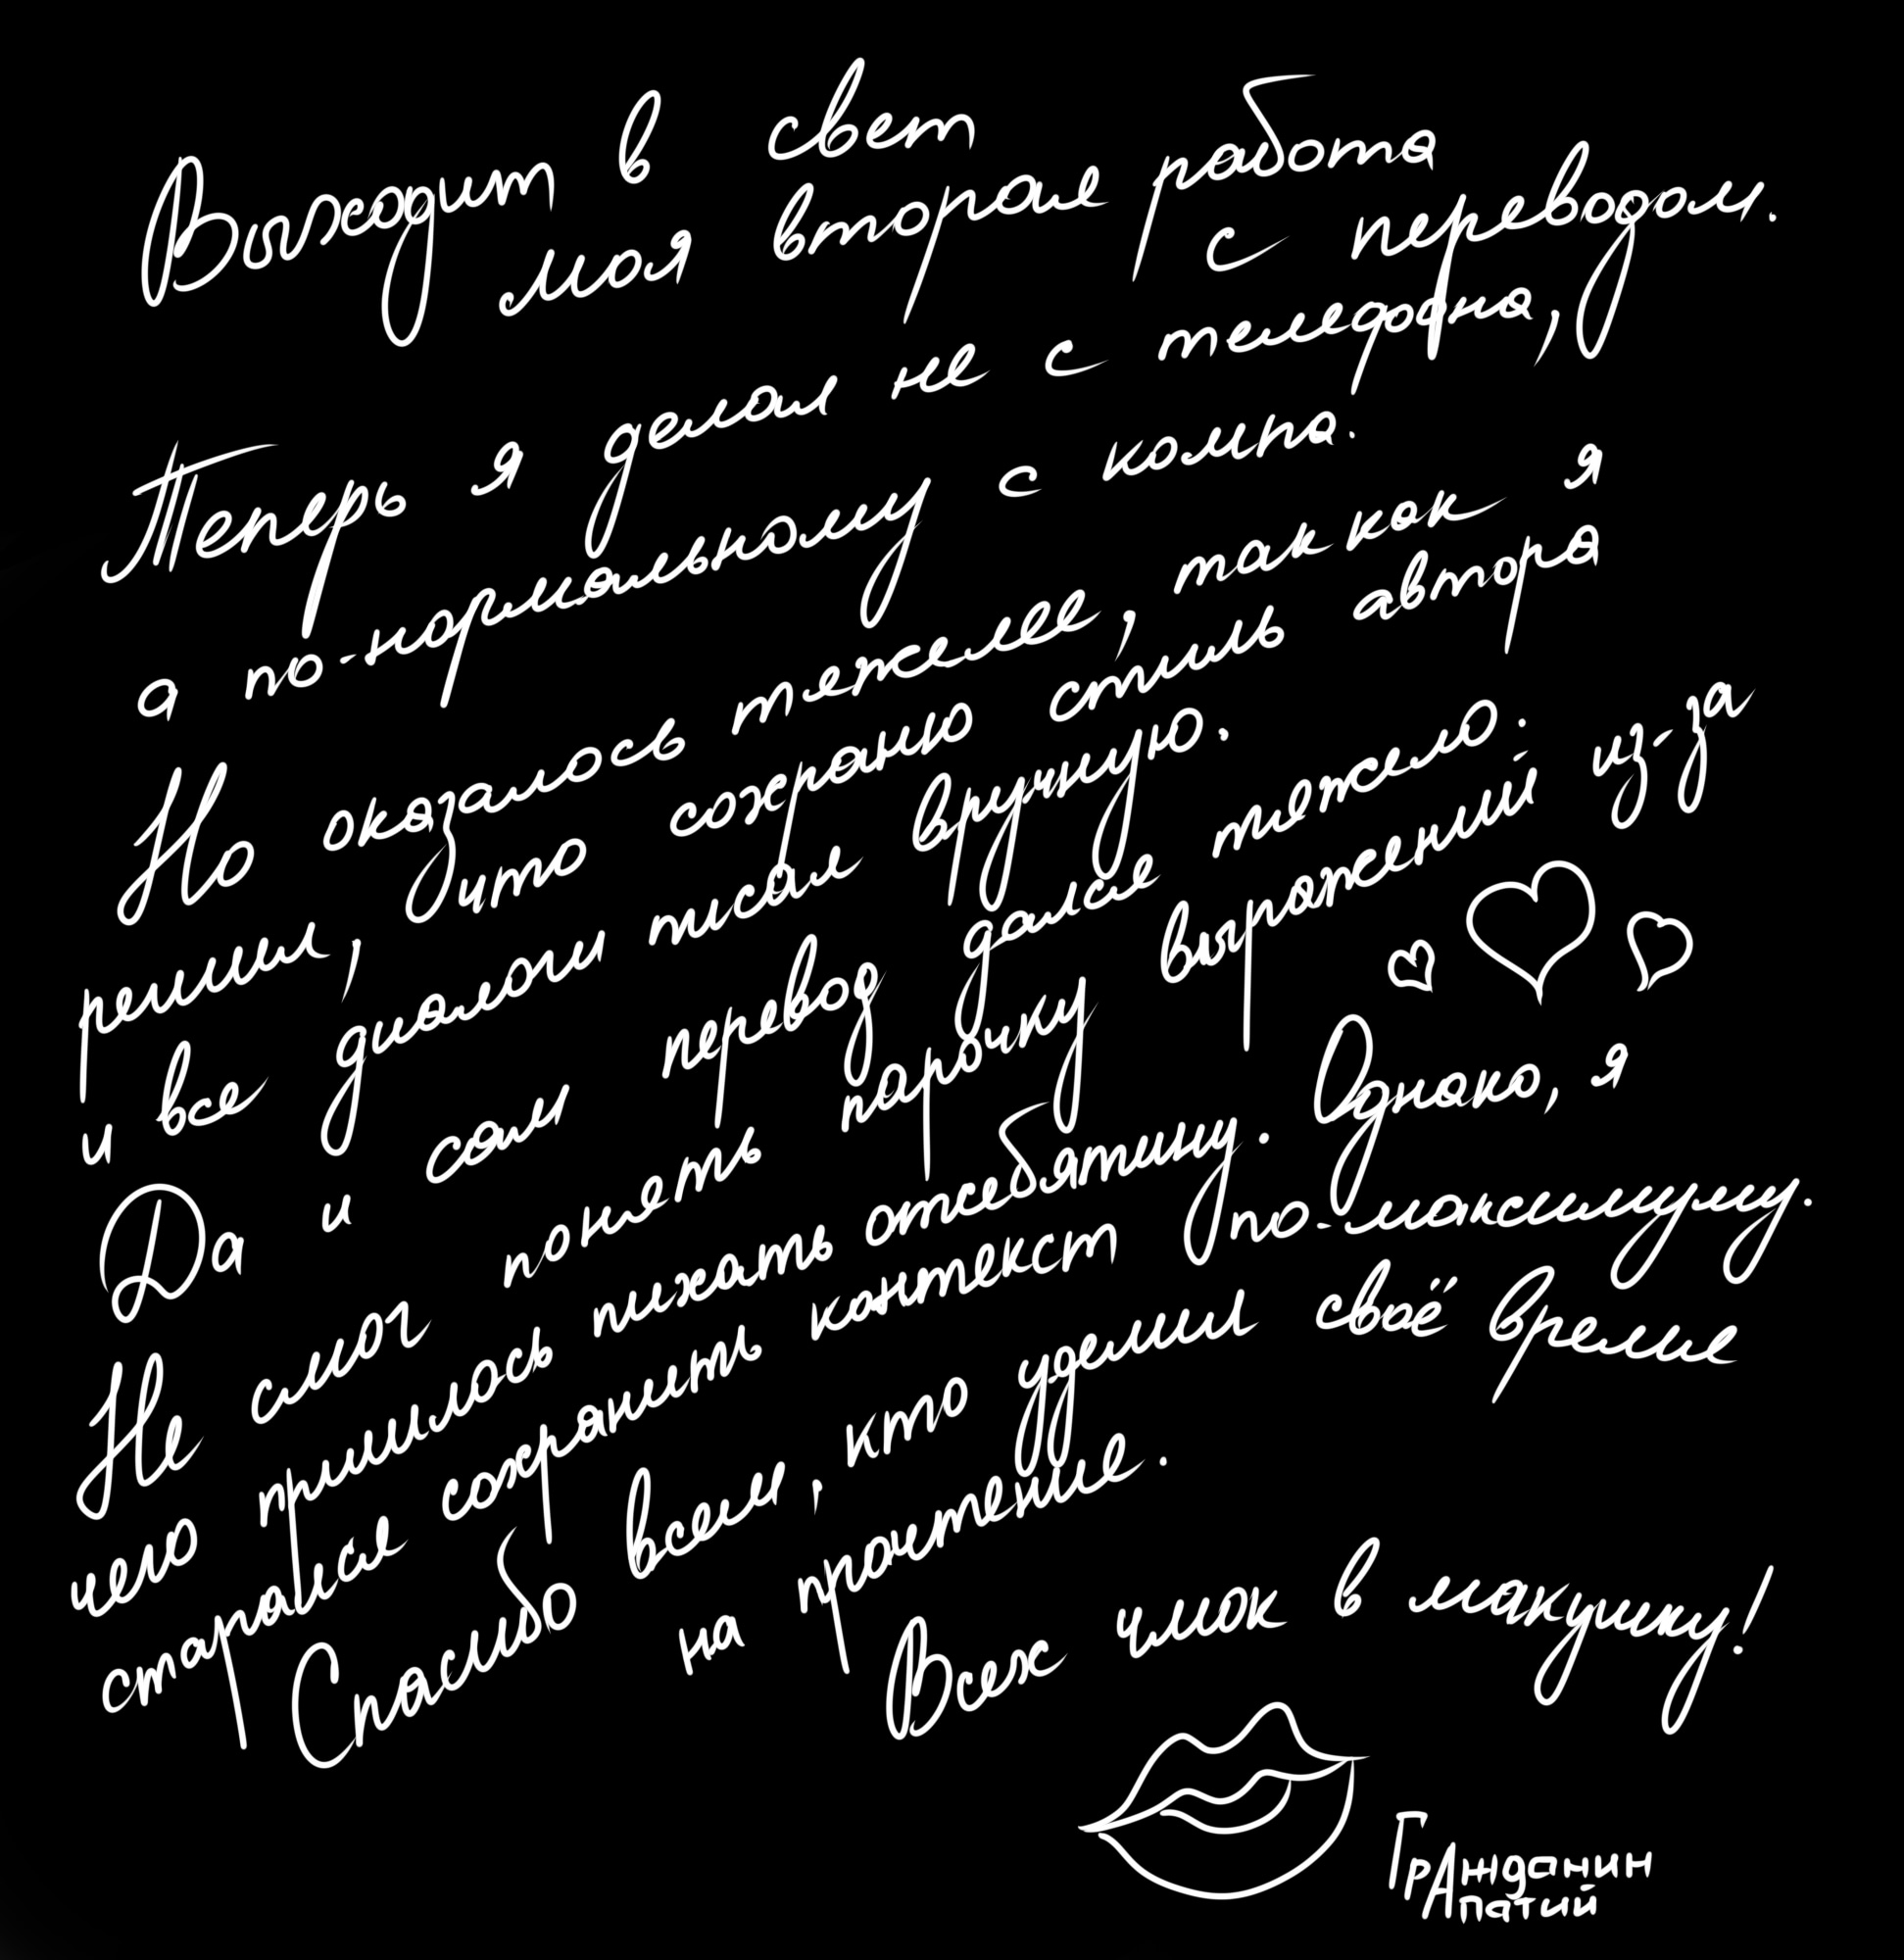 Выходит в свет
моя вторая работа
с переводом.
Теперь я делал не с теледофна,
а по-нормальному с компа.
Но оказалось тяжелее, так как я
решил, что сохраню стиль автора
и все диалоги писал вручную.
Да и сам перевод дался тяжело.
Не смог понять парочку выражений из-за
чего пришлось пихать отсебятину. Однако, я
старался сохранить контекст по-максимуму.
Спасибо всем, кто уделил своё время
на прочтение.
Всех чмок в макушку!
Гражданин
Апатий